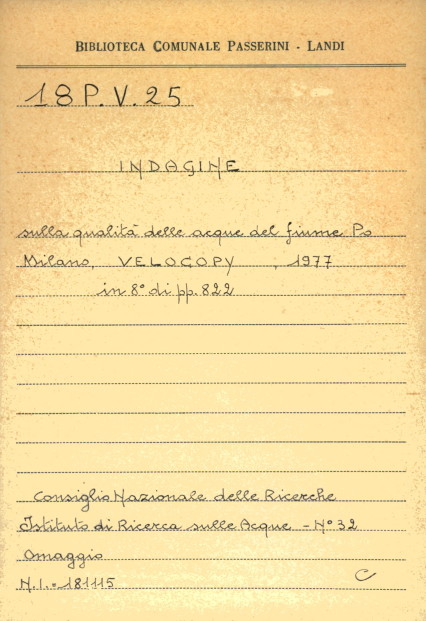 BIBLIOTECA COMUNALE PASSERINI - LANDI
18 P. V. 25
INDAGINE
sulla qualità delle acque del fiume Po
Milano, VELOCOPY, 1977
in 8° di pp. 822
Consiglio Nazionale delle Ricerche
Istituto di Ricerca sulle Acque - N° 32
Omaggio
N.I. = 181115 C